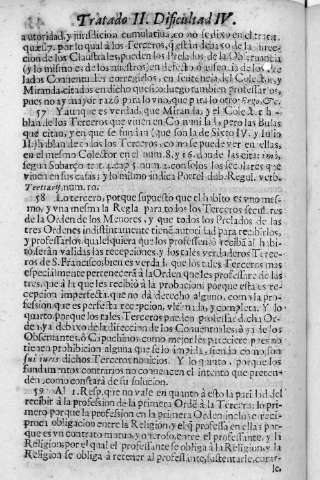 Tratado II. Dificultad IV.
autoridad, y jurisdicion cumulatiua, co no se dixo en el trata.
por lo qual à los Terceros, q̃ estàn debaxo de la direc-
cion de los Claustrales, pueden los Prelados de la Obseruancia
(y lo mismo es de los nuestros) en defecto ò ausencia de los
lados Conuentuales corregirlos, en sentencia del Colector, y
Miranda citados en dicho quesito: luego tambien professarlos,
pues no ay mayor razō para lo vno, que para lo otro. Ergo, &c.
57 Y aunque es verdad, que Miranda, y el Colector ha-
blan de los Terceros que viuen en Comunidad, pero las Bulas
que citan, y en que se fundan (que son la de Sixto IV. y Julio
II.) hablan de todos los Terceros, como se puede ver en ellas,
en el mesmo Colector en el num. 8. y 16. donde las cita:
segun Sabarço num. 2. con solos los seglares que
viuen en sus casas; y lo mismo indica Portel dub. Regul. verb.
Tertiarij, num. 10.
58 Lo tercero, porque supuesto que el habito es vno mes-
mo, y vna mesma la Regla para todos los Terceros seculares
de la Orden de los Menores, y que todos los Prelados de las
tres Ordenes indistintamente tienē autoridad para recibirlos,
y professarlos qualesquiera que los professen, ò reciba al habi-
to, seràn validas las recepciones, y los tales verdaderos Terce-
ros de S. Francisco: bien es verdad, que los tales Terceros mas
especialmente pertenecerà à la Orden que les professare de las
tres, que à la que les recibiò à la probacion: porque esta es re-
cepcion imperfecta, que no dà derecho alguno, como la pro-
fession, que es perfecta recepcion, vltimada, y completa. Y lo
quarto, porque los tales Terceros pueden professar dicha Or-
den ya debaxo de la direccion de los Conuentuales, ò ya de los
Obseruantes, ò Capuchinos, como mejor les pareciere, pues no
tienen prohibicion alguna que se lo impida, siendo como son
sui iuris dichos Terceros nouicios. Y lo quinto, porque los
fundamentos contrarios no conuencen el intento que preten-
den, como constarà de su solucion.
59 Al 1. Resp. que no vale en quanto à esto la paridad del
recibir à la profession de la primera Ordē à la Tercera: lo pri-
mero, porque la profession en la primera Orden incluye reci-
proca obligacion entre la Religion, y el q̃ professa en ella: por-
que es vn contrato mutuo, y oneroso, entre el professante, y la
Religion, por el qual el professante se obliga à la Religion, y la
Religion se obliga à retener al professante, sustentarle, curar-
le,